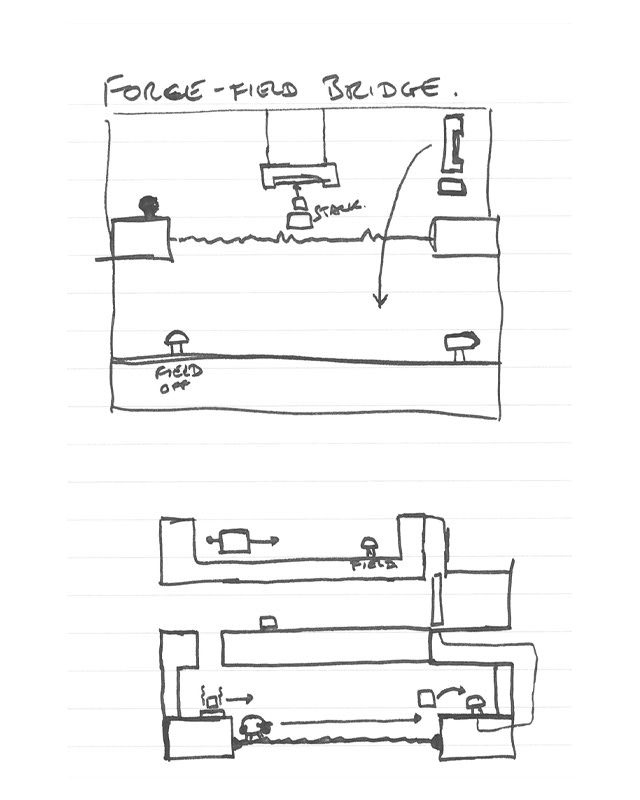 FORCE-FIELD BRIDGE.
STACK.
FIELD
OFF
FIELD